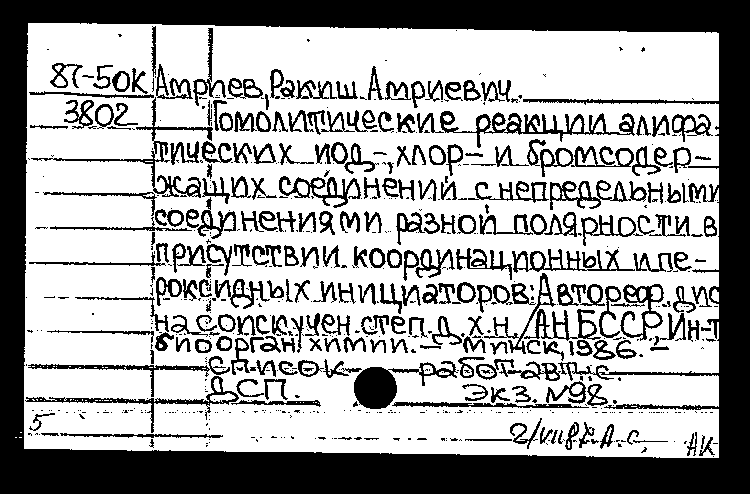 87-50К Амриев, Ракиш Амриевич.
3802 Гомолитические реакции алифа-
тических иод-, хлор- и бромсодер-
жащих соединений с непредельными
соединениями разной полярности в
присутствии координационных и пе-
роксидных инициаторов: Автореф. дис
на соиск. учен. степ. д. х. н. / АН БССР, Ин-т
биоорган. химии. - Минск, 1986. -
Список работ авт.: с.
ДСП. Экз. №98.
5 АК